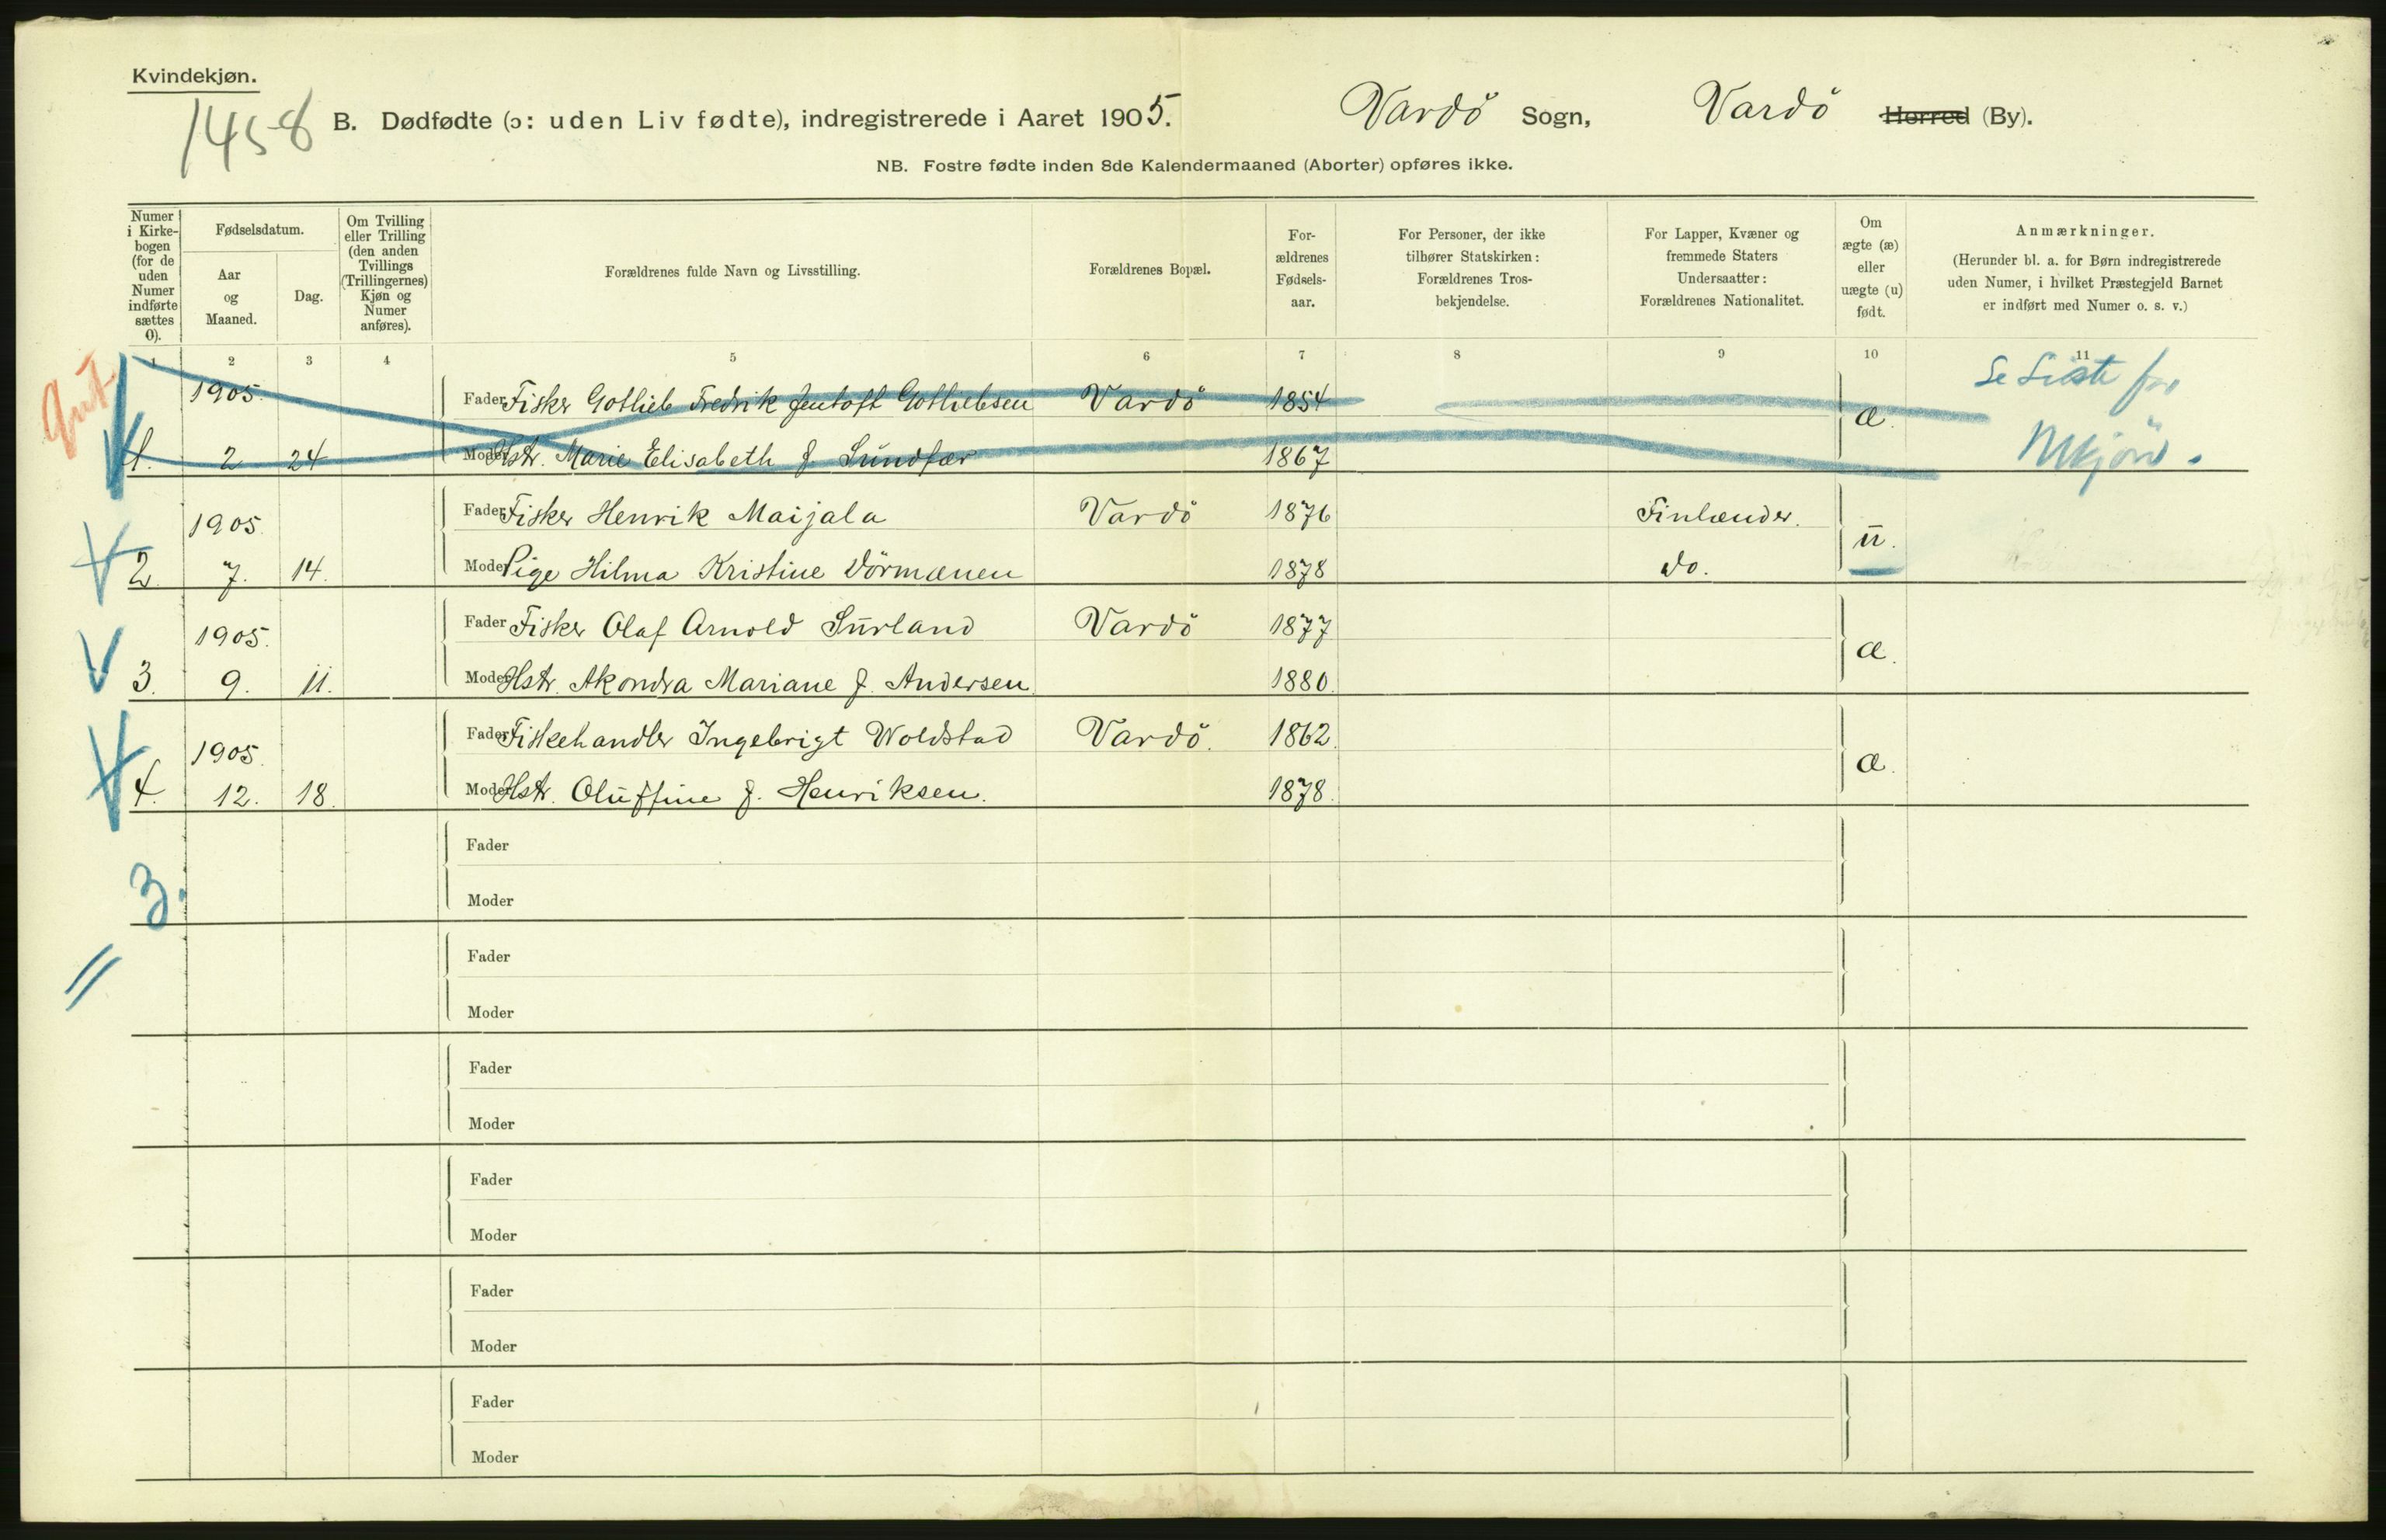 Kvindekjøn.
1458
B. Dødfødte (ɔ: uden Liv fødte), indregistrerede i Aaret 1905. Vardö Sogn, Vardö Herred (By).
NB. Fostre fødte inden 8de Kalendermaaned (Aborter) opføres ikke.
Numer i Kirke-bogen (for de uden Numer indførte sættes 0).
Fødselsdatum.
Aar og Maaned.
Dag.
Om Tvilling eller Trilling (den anden Tvillings (Trillingernes) Kjøn og Numer anføres).
Forældrenes fulde Navn og Livsstilling.
Forældrenes Bopæl.
For-ældrenes Fødsels-aar.
For Personer, der ikke tilhører Statskirken: Forældrenes Tros-bekjendelse.
For Lapper, Kvæner og fremmede Staters Undersaatter: Forældrenes Nationalitet.
Om ægte (æ) eller uægte (u) født.
Anmærkninger.
(Herunder bl. a. for Børn indregistrerede uden Numer, i hvilket Præstegjeld Barnet er indført med Numer o. s. v.)
1 2 3 4 5 6 7 8 9 10 11
1905. Fader Fisker Gotlieb Fredrik Jentoft Gotliebsen Vardö 1854 æ. Se Liste for
1. 2 24 Moder Hstr. Marie Elisabeth f. Sundfær 1867 Mkjön.
1905. Fader Fisker Henrik Maijala Vardö 1876 Finlænder. u.
2. 7. 14. Moder Pige Hilma Kristine Vörmænen 1878 do.
1905. Fader Fisker Olaf Arnold Surland Vardö 1877 æ.
3. 9. 11. Moder Hstr. Akondra Mariane f. Andersen 1880.
1905. Fader Fiskehandler Ingebrigt Woldstad Vardö. 1862. æ.
4. 12. 18. Moder Hstr. Oluffine f. Henriksen. 1878.
3.
Fader
Moder
Fader
Moder
Fader
Moder
Fader
Moder
Fader
Moder
Fader
Moder